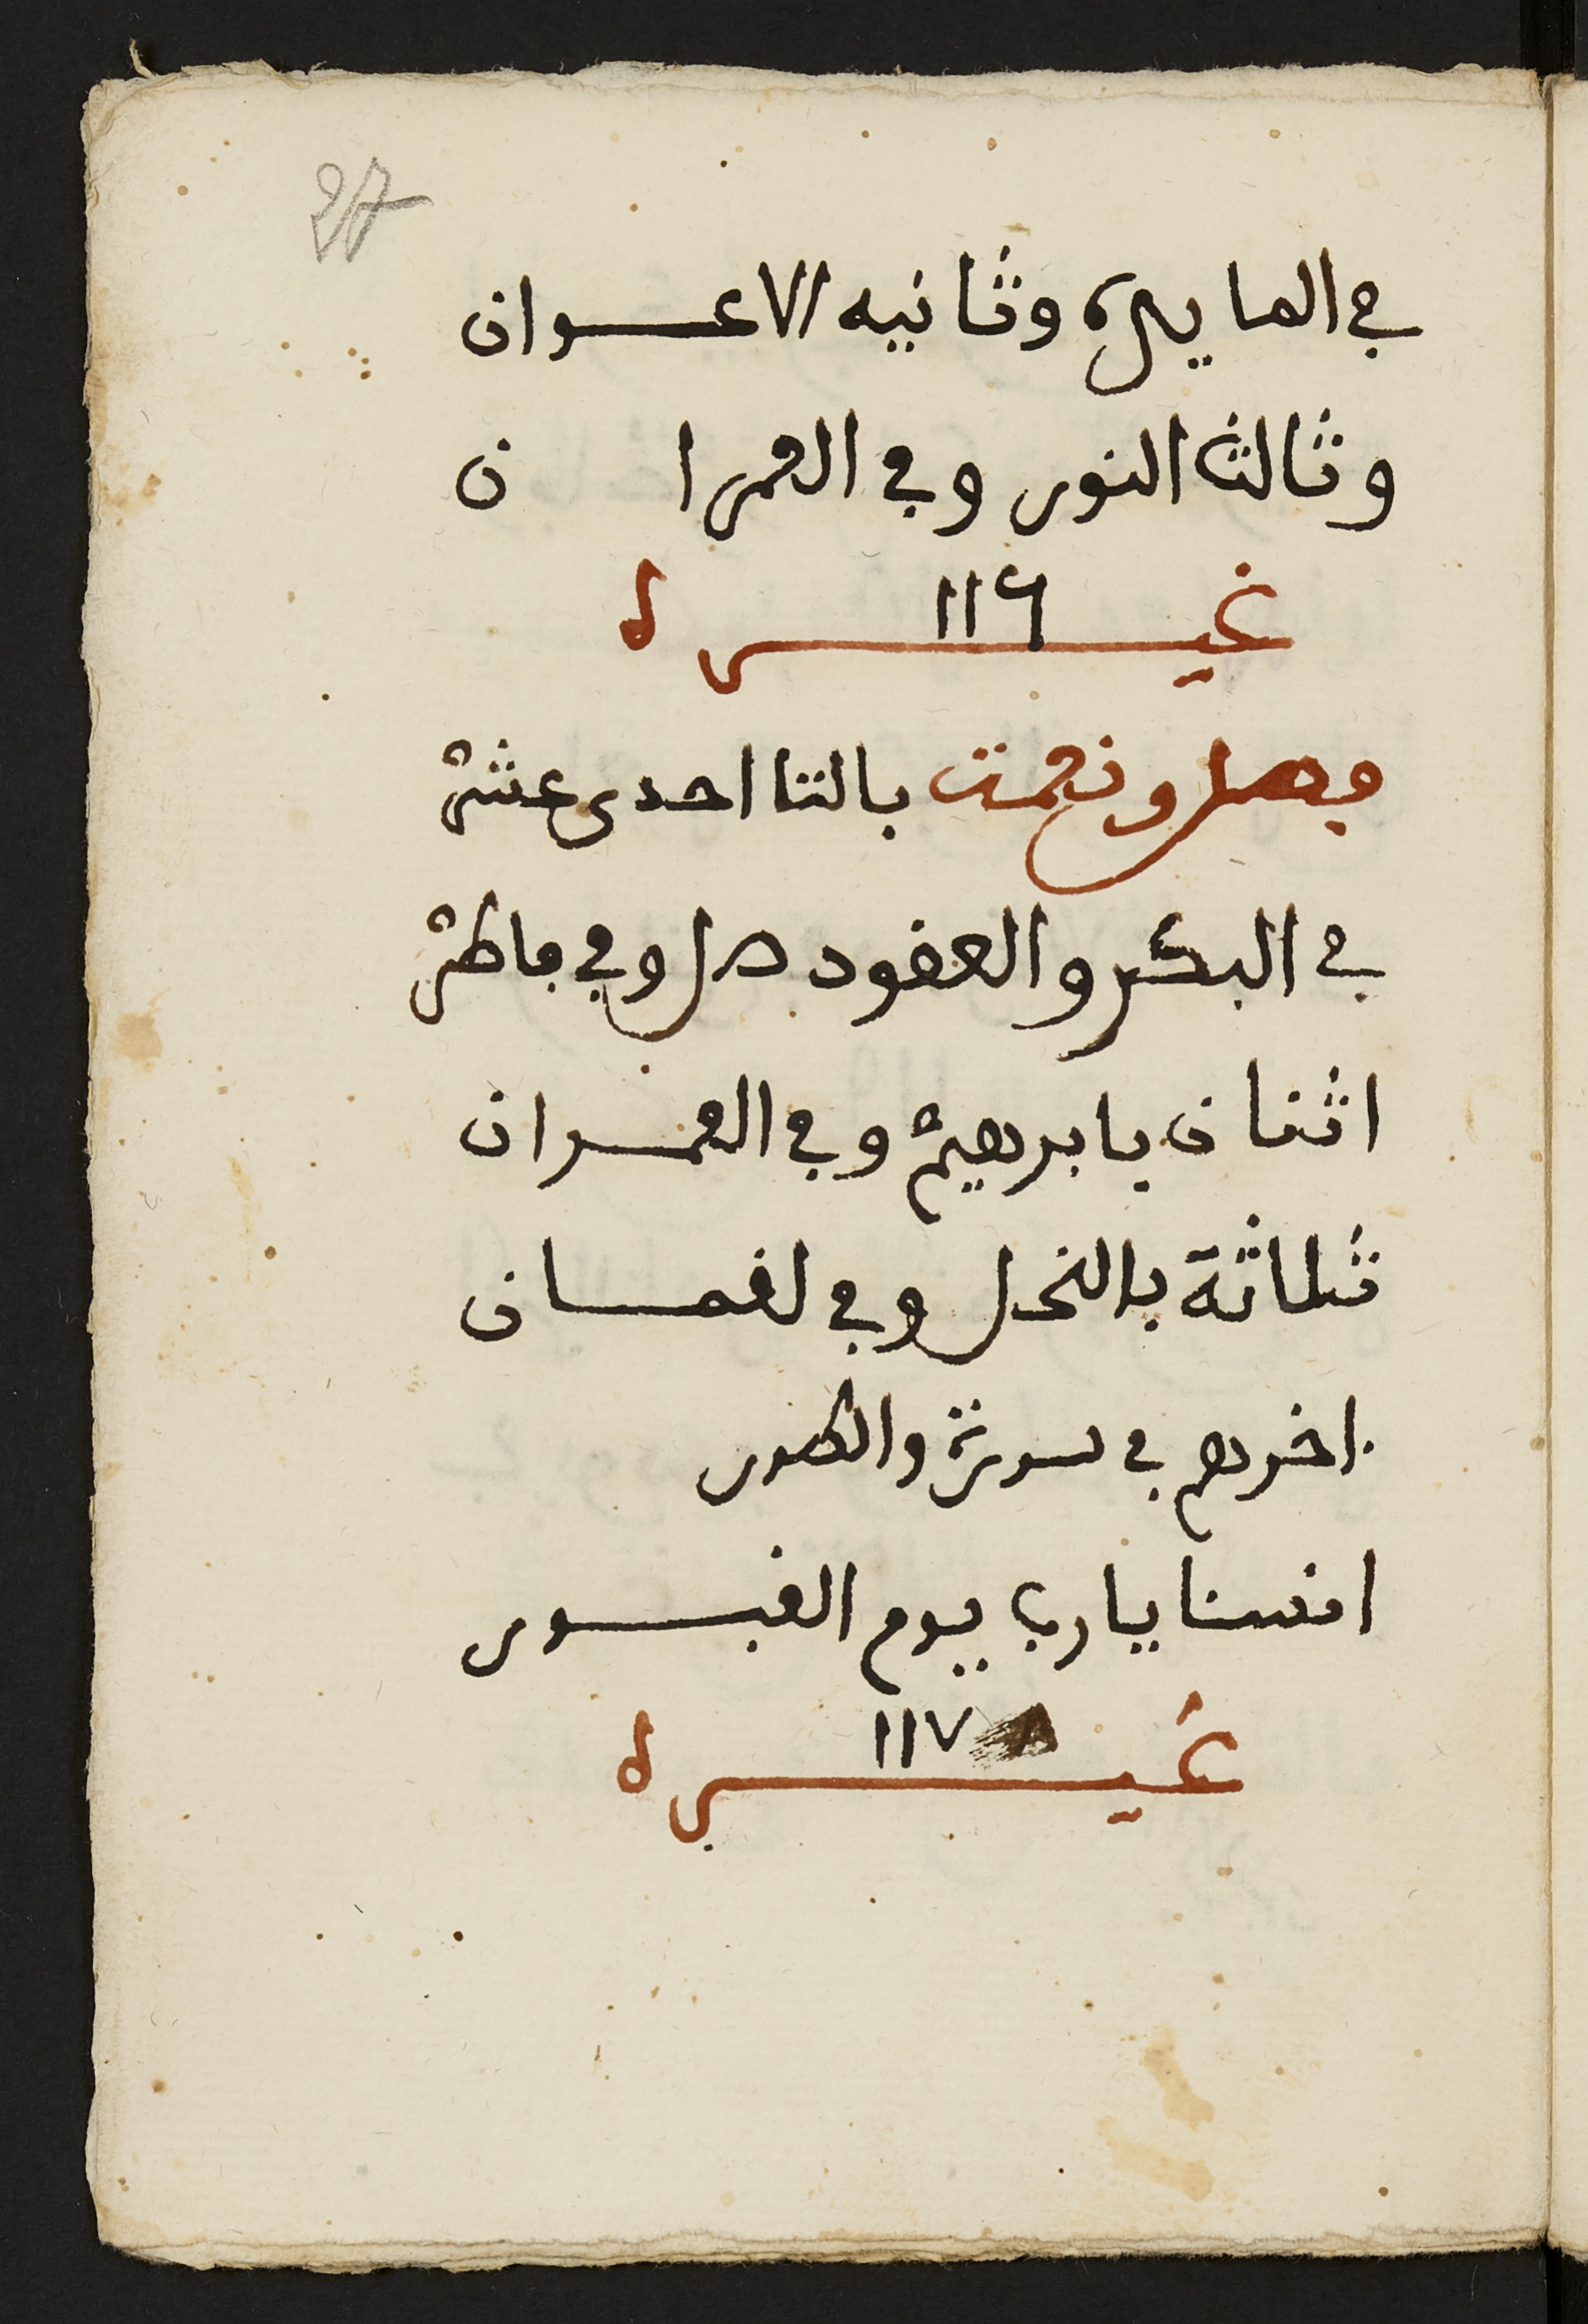 27
في المايده وثانيه الاعـوان
وثالث النور وفي العمرا ن
غيـره ١١٦
فصل ونعمت بالتا احدى عشر
في البكر والعقود هل وفي فاطر
اثنان بابرهيم وفي العمـران
ثلاثة بالنحل وفي لقمـان
اخرهم في سورة والطور
انسنا يارب يوم القبـور
غيـره ١١٧